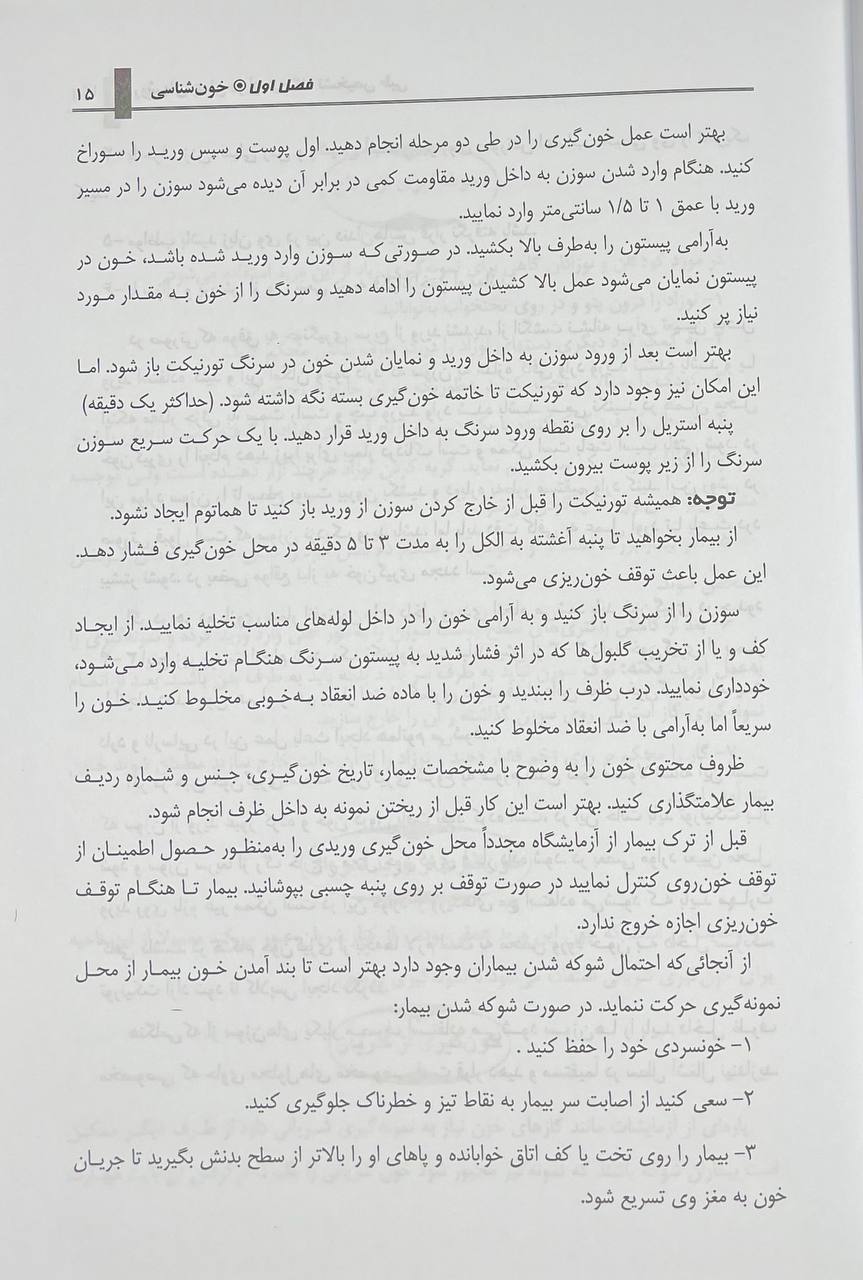 فصل اول ⦿ خون‌شناسی ۱۵
بهتر است عمل خون‌گیری را در طی دو مرحله انجام دهید. اول پوست و سپس ورید را سوراخ
کنید. هنگام وارد شدن سوزن به داخل ورید مقاومت کمی در برابر آن دیده می‌شود سوزن را در مسیر
ورید با عمق ۱ تا ۱/۵ سانتی‌متر وارد نمایید.
به‌آرامی پیستون را به‌طرف بالا بکشید. در صورتی‌که سوزن وارد ورید شده باشد، خون در
پیستون نمایان می‌شود عمل بالا کشیدن پیستون را ادامه دهید و سرنگ را از خون به مقدار مورد
نیاز پر کنید.
بهتر است بعد از ورود سوزن به داخل ورید و نمایان شدن خون در سرنگ تورنیکت باز شود. اما
این امکان نیز وجود دارد که تورنیکت تا خاتمه خون‌گیری بسته نگه داشته شود. (حداکثر یک دقیقه)
پنبه استریل را بر روی نقطه ورود سرنگ به داخل ورید قرار دهید. با یک حرکت سریع سوزن
سرنگ را از زیر پوست بیرون بکشید.
توجه: همیشه تورنیکت را قبل از خارج کردن سوزن از ورید باز کنید تا هماتوم ایجاد نشود.
از بیمار بخواهید تا پنبه آغشته به الکل را به مدت ۳ تا ۵ دقیقه در محل خون‌گیری فشار دهد.
این عمل باعث توقف خون‌ریزی می‌شود.
سوزن را از سرنگ باز کنید و به آرامی خون را در داخل لوله‌های مناسب تخلیه نمایید. از ایجاد
کف و یا از تخریب گلبول‌ها که در اثر فشار شدید به پیستون سرنگ هنگام تخلیه وارد می‌شود،
خودداری نمایید. درب ظرف را ببندید و خون را با ماده ضد انعقاد به‌خوبی مخلوط کنید. خون را
سریعاً اما به‌آرامی با ضد انعقاد مخلوط کنید.
ظروف محتوی خون را به وضوح با مشخصات بیمار، تاریخ خون‌گیری، جنس و شماره ردیف
بیمار علامتگذاری کنید. بهتر است این کار قبل از ریختن نمونه به داخل ظرف انجام شود.
قبل از ترک بیمار از آزمایشگاه مجدداً محل خون‌گیری وریدی را به‌منظور حصول اطمینان از
توقف خون‌روی کنترل نمایید در صورت توقف بر روی پنبه چسبی بپوشانید. بیمار تا هنگام توقف
خون‌ریزی اجازه خروج ندارد.
از آنجائی‌که احتمال شوکه شدن بیماران وجود دارد بهتر است تا بند آمدن خون بیمار از محل
نمونه‌گیری حرکت ننماید. در صورت شوکه شدن بیمار:
۱- خونسردی خود را حفظ کنید .
۲- سعی کنید از اصابت سر بیمار به نقاط تیز و خطرناک جلوگیری کنید.
۳- بیمار را روی تخت یا کف اتاق خوابانده و پاهای او را بالاتر از سطح بدنش بگیرید تا جریان
خون به مغز وی تسریع شود.